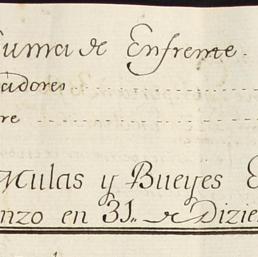 Suma de Enfrente.
adores
re
Mulas y Bueyes E
nzo en 31. de Dizie